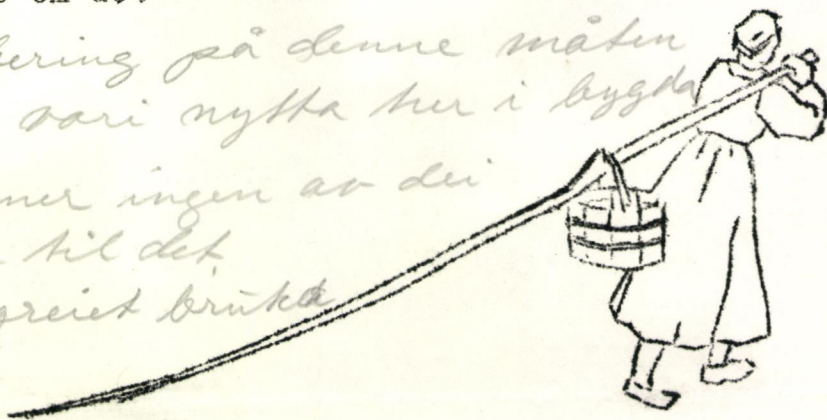 om
bering på denne måten
vori nytta her i bygda
ner ingen av dei
til det
greiet bruka